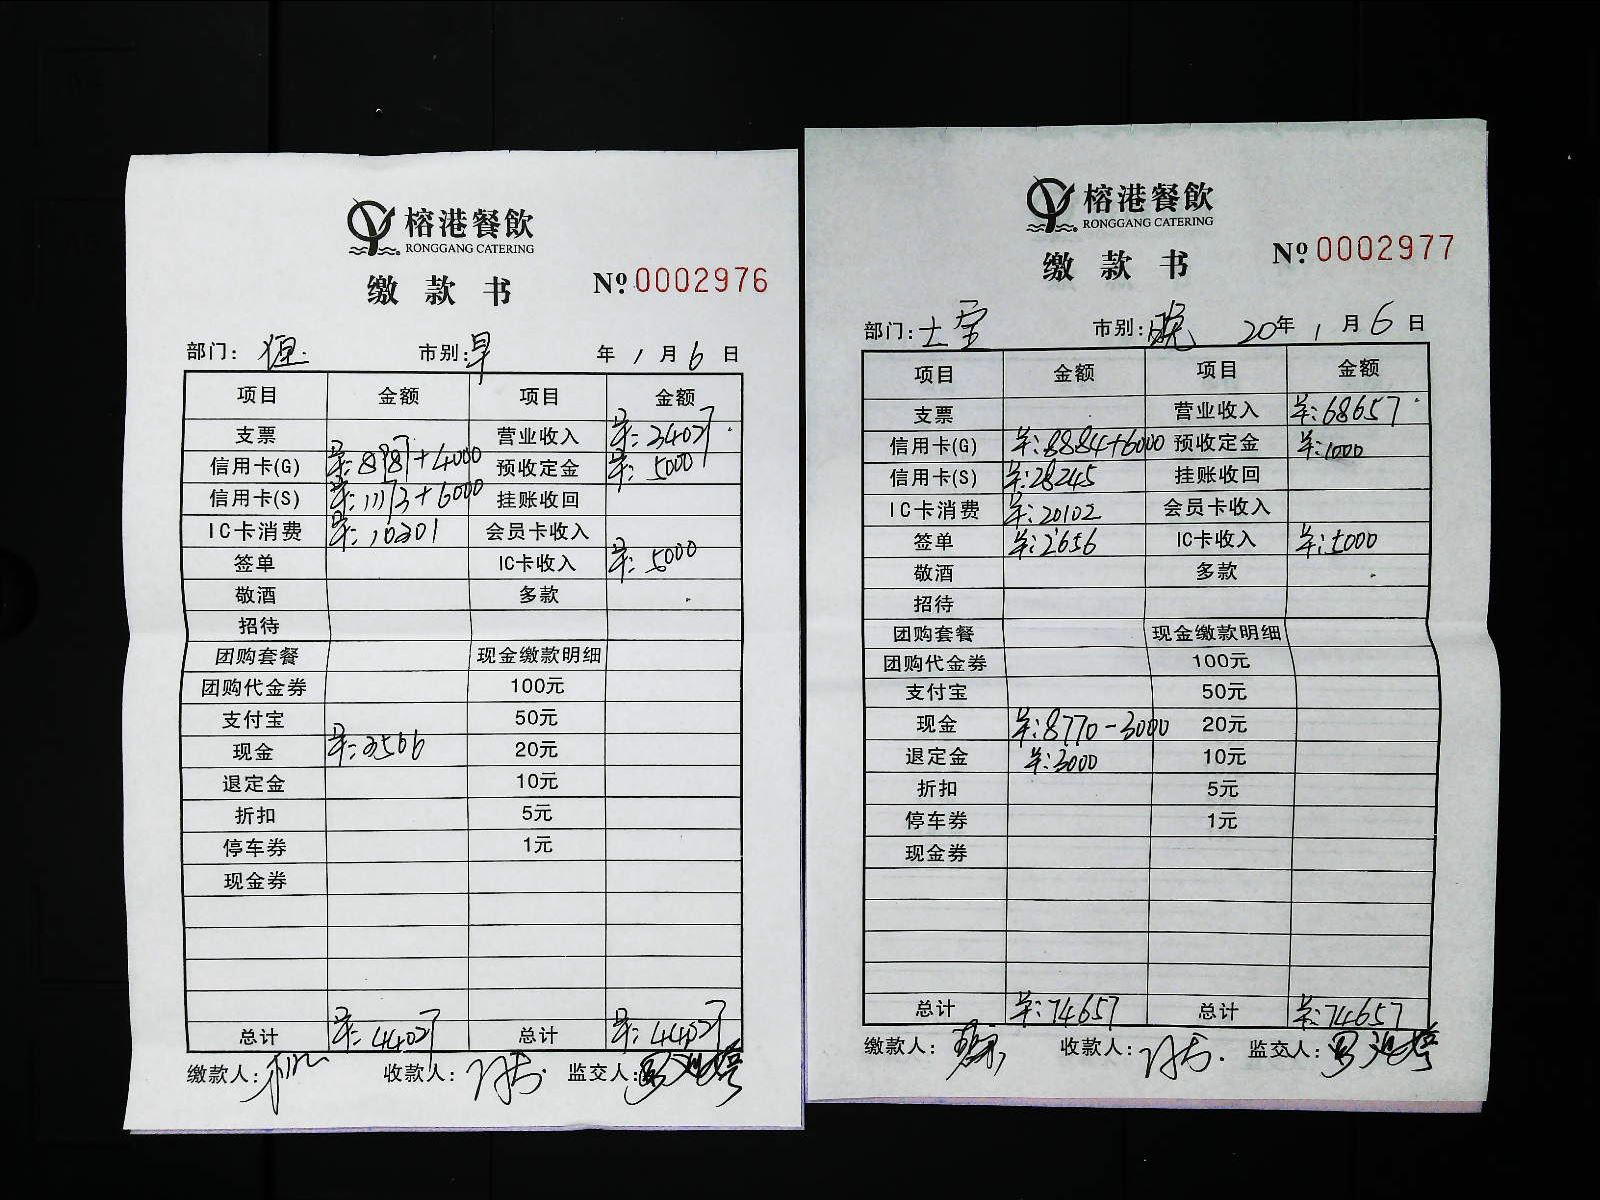 榕港餐飲
RONGGANG CATERING
缴款书
Nº 0002976
部门： 市别：早 年 1 月 6 日
项目 金额 项目 金额
支票 营业收入 ¥:34027
信用卡(G) ¥:8987+4000 预收定金 ¥:5000
信用卡(S) ¥:11173+6000 挂账收回
IC卡消费 ¥:10301 会员卡收入
签单 IC卡收入 ¥:5000
敬酒 多款
招待
团购套餐 现金缴款明细
团购代金券 100元
支付宝 50元
现金 ¥:3566 20元
退定金 10元
折扣 5元
停车券 1元
现金券
总计 ¥:44027 总计 ¥:44027
缴款人： 收款人： 监交人：
榕港餐飲
RONGGANG CATERING
缴款书
Nº 0002977
部门： 市别：晚 20年 1 月 6 日
项目 金额 项目 金额
支票 营业收入 ¥:68657
信用卡(G) ¥:8884+6000 预收定金 ¥:1000
信用卡(S) ¥:28245 挂账收回
IC卡消费 ¥:20102 会员卡收入
签单 ¥:2656 IC卡收入 ¥:5000
敬酒 多款
招待
团购套餐 现金缴款明细
团购代金券 100元
支付宝 50元
现金 ¥:8770-3000 20元
退定金 ¥:3000 10元
折扣 5元
停车券 1元
现金券
总计 ¥:74657 总计 ¥:74657
缴款人： 收款人： 监交人：